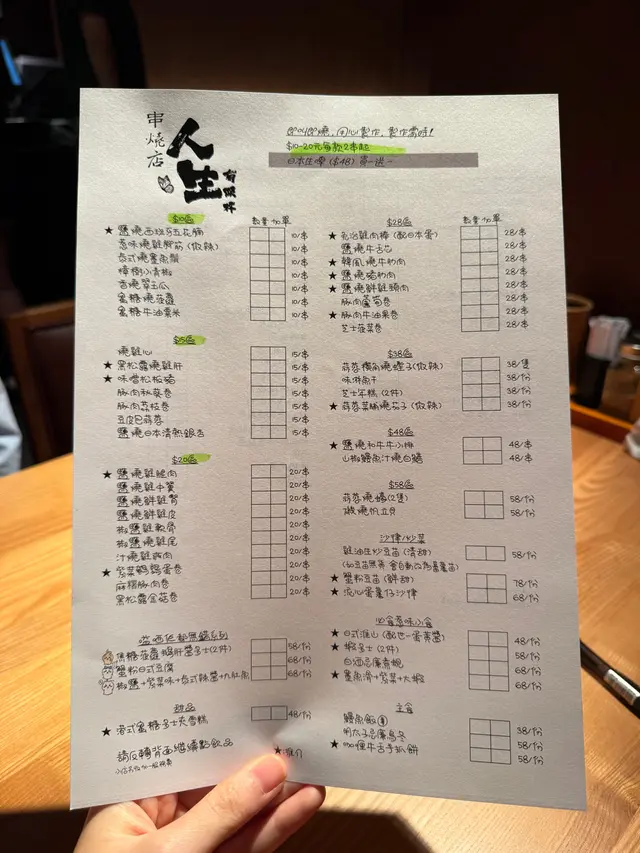 串燒店
人生
有限杯
即叫即燒，用心製作，製作需時!
$10-20元每款2串起
日本生啤 ($48) 買一送一
$10區
數量 加單
★ 鹽燒西班牙五花腩 10/串
惹味燒雞腳筋 (微辣) 10/串
台式燒墨魚鬚 10/串
樟樹小青椒 10/串
香燒翠玉瓜 10/串
蜜糖燒菠蘿 10/串
蜜糖牛油粟米 10/串
$15區
燒雞心 15/串
★ 黑松露燒雞肝 15/串
★ 味噌松板豬 15/串
豚肉秋葵卷 15/串
豚肉荔枝卷 15/串
豆皮巴蒜蓉 15/串
鹽燒日本清熱銀杏 15/串
$20區
★ 鹽燒雞腿肉 20/串
鹽燒雞中翼 20/串
鹽燒鮮雞腎 20/串
鹽燒鮮雞皮 20/串
椒鹽雞軟骨 20/串
椒鹽燒雞尾 20/串
汁燒雞肉 20/串
★ 紫菜鵪鶉蛋卷 20/串
麻糬豚肉卷 20/串
黑松露金菇卷 20/串
焦糖菠蘿鵝肝醬多士(2件) 58/份
蟹粉日式豆腐 68/份
椒鹽+紫菜味+台式辣醬+九肚魚 68/份
甜品
★ 港式蜜糖多士夾雪糕 48/份
請反轉背面繼續點飲品
小店另收加一服務費
★推介
$28區
數量 加單
★ 免治雞肉棒 (配日本蛋) 28/串
鹽燒牛舌芯 28/串
★ 韓風燒牛肋肉 28/串
★ 鹽燒豬肋肉 28/串
★ 鹽燒鮮雞頸肉 28/串
豚肉蘆筍卷 28/串
★ 豚肉牛油果卷 28/串
芝士菠菜卷 28/串
$38區
蒜蓉獨角燒蟶子(微辣) 38/隻
味淋魚干 38/份
芝士年糕 (2件) 38/份
★ 蒜蓉菜脯燒茄子 (微辣) 38/份
$48區
★ 鹽燒和牛牛小排 48/串
山椒鰻魚汁燒白鱔 48/串
$58區
蒜蓉燒蠔(2隻) 58/份
椒燒帆立貝 58/份
沙律/炒菜
雞油生炒豆苗 (清甜) 58/份
(如豆苗無貨 會自動改為番薯苗)
★ 蟹粉豆苗 (鮮甜) 78/份
★ 流心蛋薯仔沙律 68/份
必食惹味小食
★ 日式淮山 (配世一蛋黃醬) 48/份
★ 蝦多士 (2件) 58/份
白酒忌廉青蜆 68/份
★ 墨魚滑+紫菜+大蝦 68/份
主食
鰻魚飯 38/份
明太子忌廉烏冬 58/份
★ 咖喱牛舌手抓餅 58/份